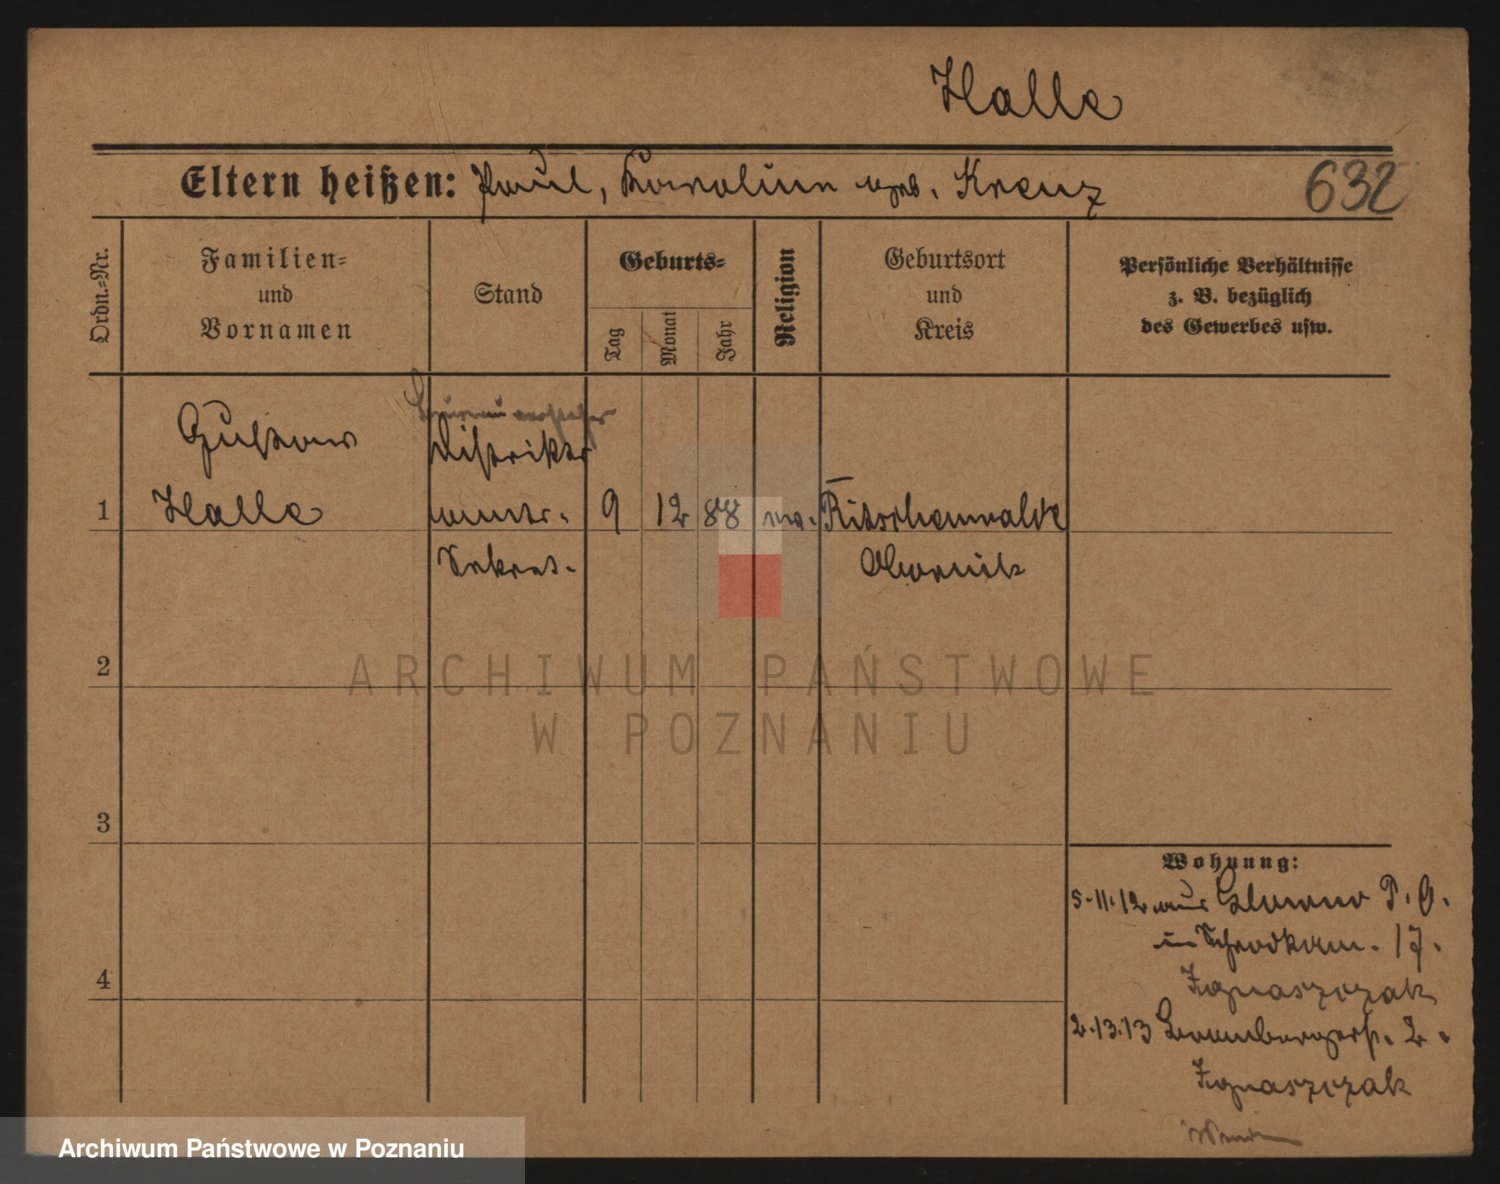 Halle
Eltern heißen: Paul, Karoline geb. Krenz
632
Ordn.-Nr.
Familien-
und
Vornamen
Stand
Geburts-
Tag
Monat
Jahr
Religion
Geburtsort
und
Kreis
Persönliche Verhältnisse
z. B. bezüglich
des Gewerbes usw.
Bureauvorsteher
Gustav
Distrikts
1
Halle
amts-
9
12
88
ev.
Ritschenwalde
Sekret.
Obornik
2
ARCHIWUM PAŃSTWOWE
W POZNANIU
3
Wohnung:
5.11.12 aus Glowno P. O.
in Schrodkam. 17.
Ignaszczak
4
2.13.13 Brombergerst. 2.
Ignaszczak
Archiwum Państwowe w Poznaniu